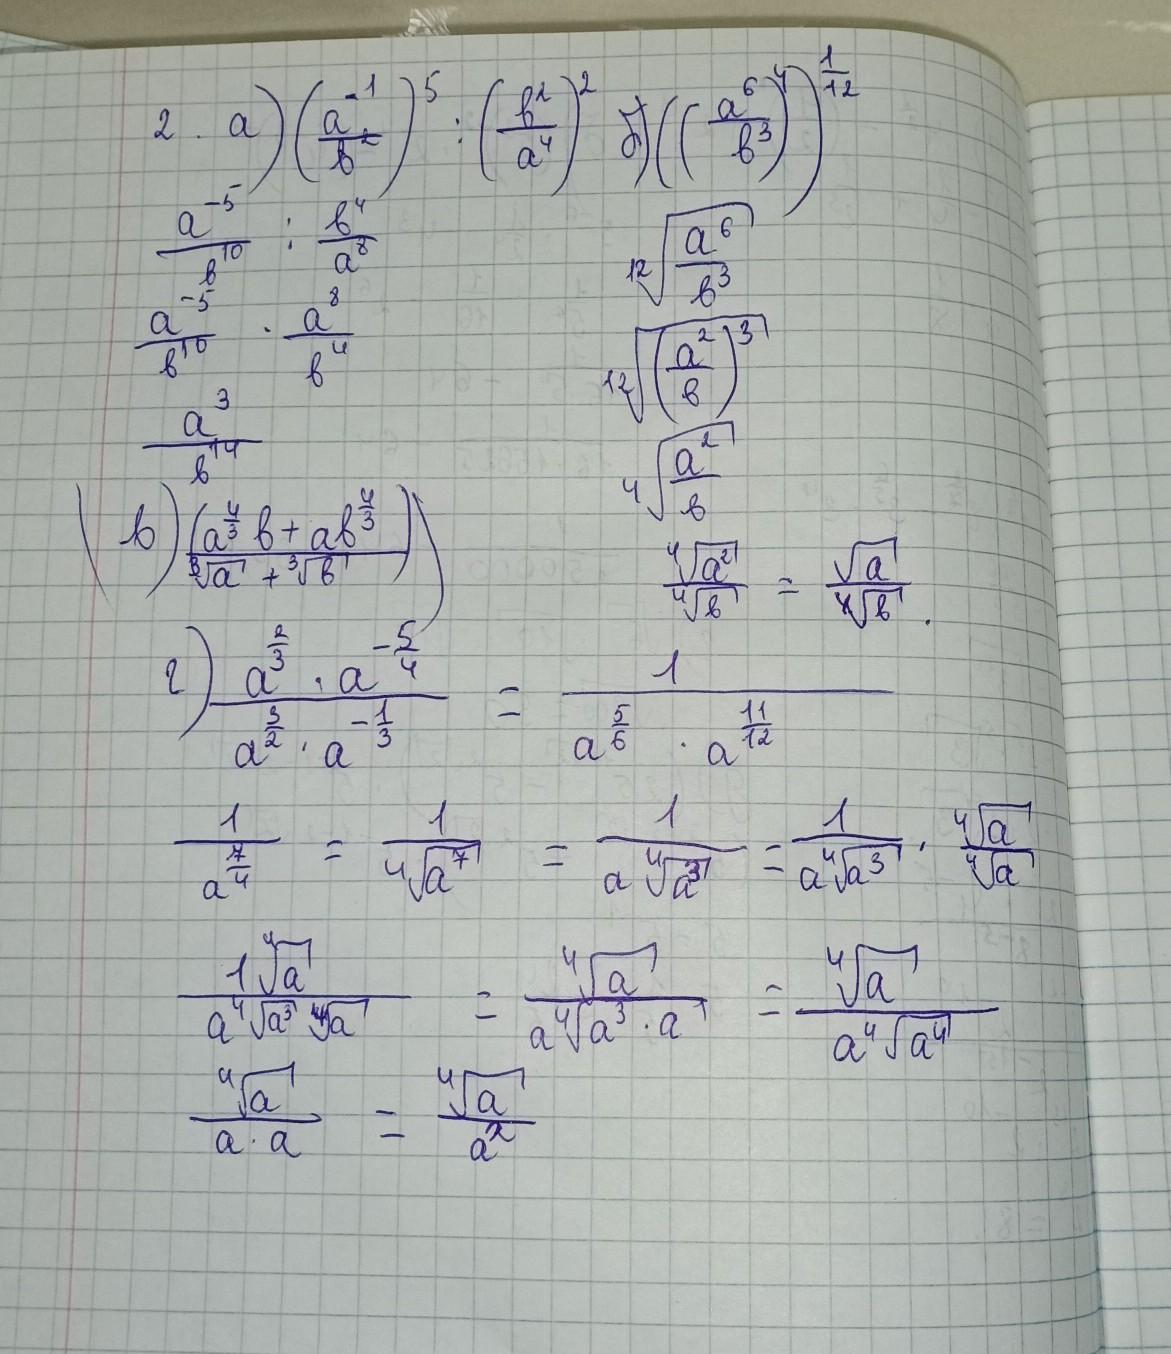 2. а) (a^{-1}/b^2)^5 : (b^2/a^4)^2 б) ((a^6/b^3)^4)^{1/12}
a^{-5}/b^{10} : b^4/a^8
\sqrt[12]{a^6/b^3}
a^{-5}/b^{10} · a^8/b^4
\sqrt[12]{(a^2/b)^3}
a^3/b^{14}
\sqrt[4]{a^2/b}
в) (a^{4/3} b + ab^{4/3})/(\sqrt[3]{a} + \sqrt[3]{b})
\sqrt[4]{a^2}/\sqrt[4]{b} = \sqrt{a}/\sqrt[4]{b}.
г) (a^{2/3} · a^{-5/4})/(a^{3/2} · a^{-1/3}) = 1/(a^{5/6} · a^{11/12})
1/a^{7/4} = 1/\sqrt[4]{a^7} = 1/(a\sqrt[4]{a^3}) = 1/(a\sqrt[4]{a^3}) · \sqrt[4]{a}/\sqrt[4]{a}
1\sqrt[4]{a}/(a\sqrt[4]{a^3} \sqrt[4]{a}) = \sqrt[4]{a}/(a\sqrt[4]{a^3 · a}) = \sqrt[4]{a}/(a\sqrt[4]{a^4})
\sqrt[4]{a}/(a · a) = \sqrt[4]{a}/a^2